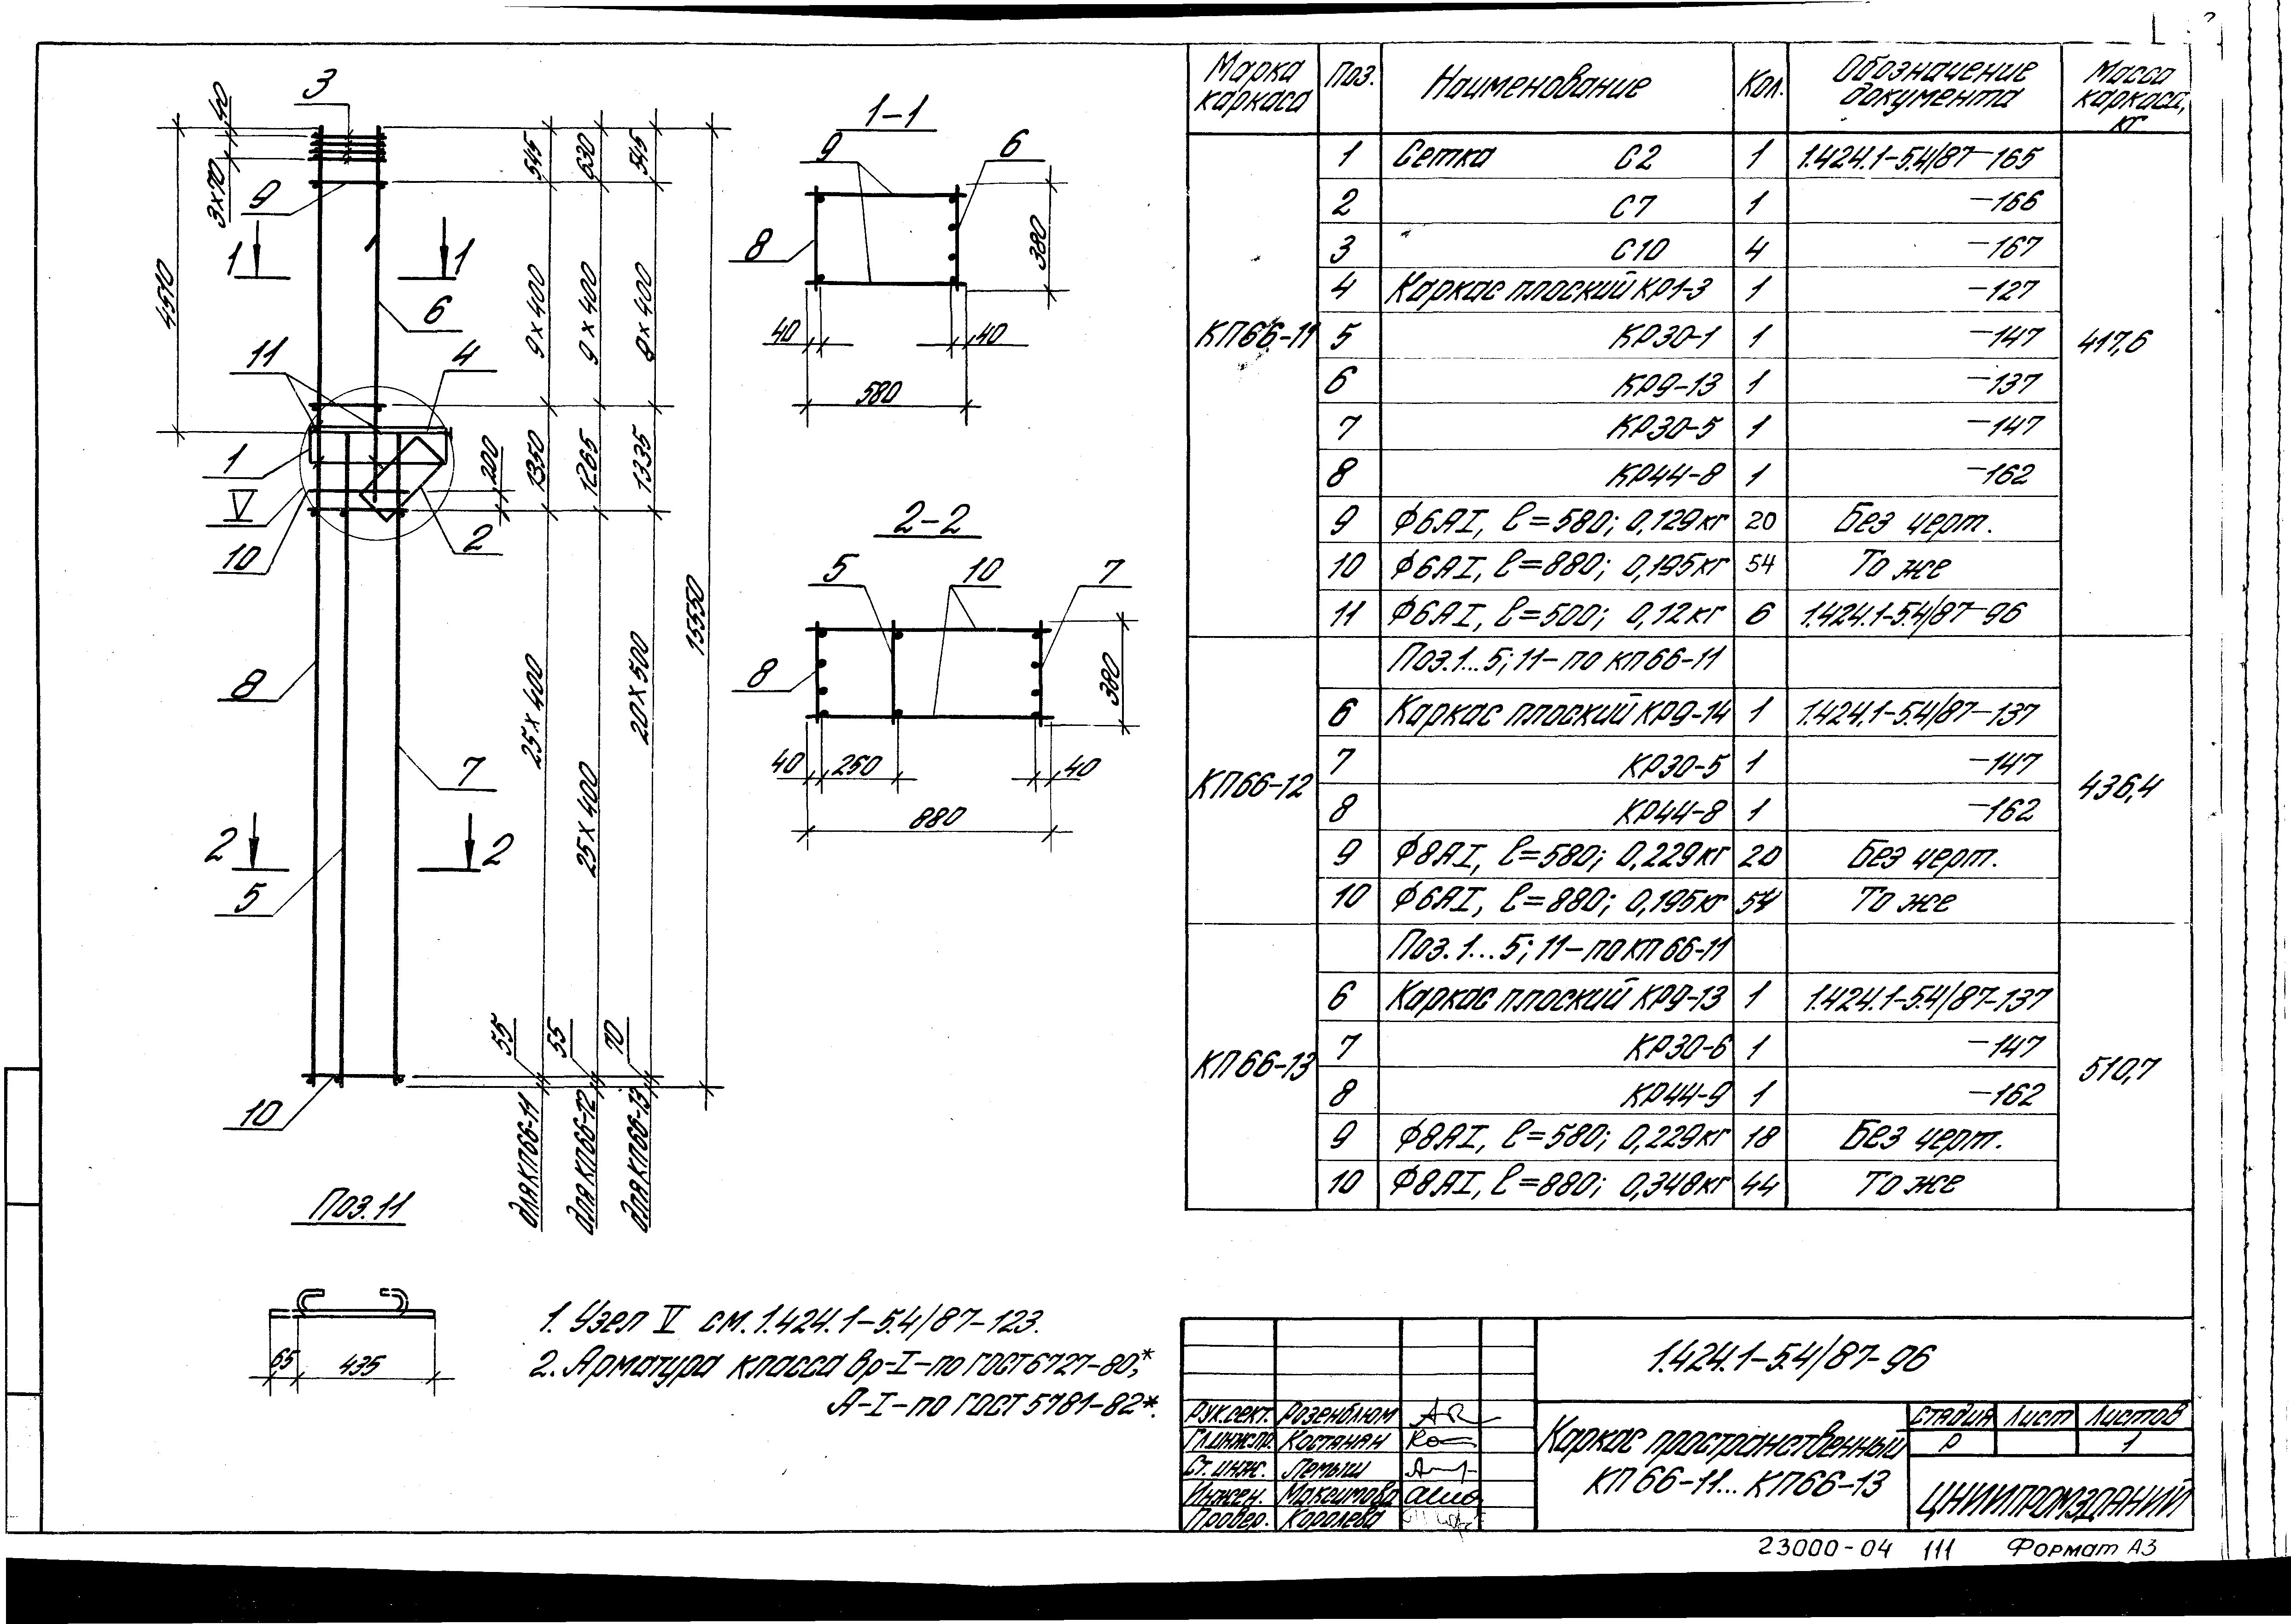 3
40
3×70
9
1 1
4510
6
11
4
1
V
10
2
200
8
7
2 2
5
10
545
630
545
9×400
9×400
8×400
1350
1265
1335
25×400
25×400
20×500
15550
55
55
70
для КП66-11
для КП66-12
для КП66-13
1-1
9
6
8
380
40
40
580
2-2
5
10
7
8
380
40
250
40
880
Поз.11
65
435
1. Узел V см. 1.424.1-5.4/87-123.
2. Арматура класса Вр-I-по ГОСТ 6727-80;*
А-I-по ГОСТ 5781-82*.
Марка каркаса Поз. Наименование Кол. Обозначение документа Масса каркаса, кг
КП66-11 417,6
1 Сетка С2 1 1.424.1-5.4/87-165
2 С7 1 -166
3 С10 4 -167
4 Каркас плоский КР1-3 1 -127
5 КР30-1 1 -147
6 КР9-13 1 -137
7 КР30-5 1 -147
8 КР44-8 1 -162
9 Ф6АI, ℓ=580; 0,129кг 20 Без черт.
10 Ф6АI, ℓ=880; 0,195кг 54 То же
11 Ф6АI, ℓ=500; 0,12кг 6 1.424.1-5.4/87-96
КП66-12 436,4
Поз.1...5; 11-по КП66-11
6 Каркас плоский КР9-14 1 1.424.1-5.4/87-137
7 КР30-5 1 -147
8 КР44-8 1 -162
9 Ф8АI, ℓ=580; 0,229кг 20 Без черт.
10 Ф6АI, ℓ=880; 0,195кг 54 То же
КП66-13 510,7
Поз.1...5; 11-по КП66-11
6 Каркас плоский КР9-13 1 1.424.1-5.4/87-137
7 КР30-6 1 -147
8 КР44-9 1 -162
9 Ф8АI, ℓ=580; 0,229кг 18 Без черт.
10 Ф8АI, ℓ=880; 0,348кг 44 То же
1.424.1-5.4/87-96
Рук.сект. Розенблюм
Гл.инж.пр. Костанян
Ст. инж. Лемыш
Инжен. Максимова
Провер. Королева
Каркас пространственный
КП66-11...КП66-13
Стадия Лист Листов
Р 1
ЦНИИПРОМЗДАНИЙ
23000-04 111 Формат А3